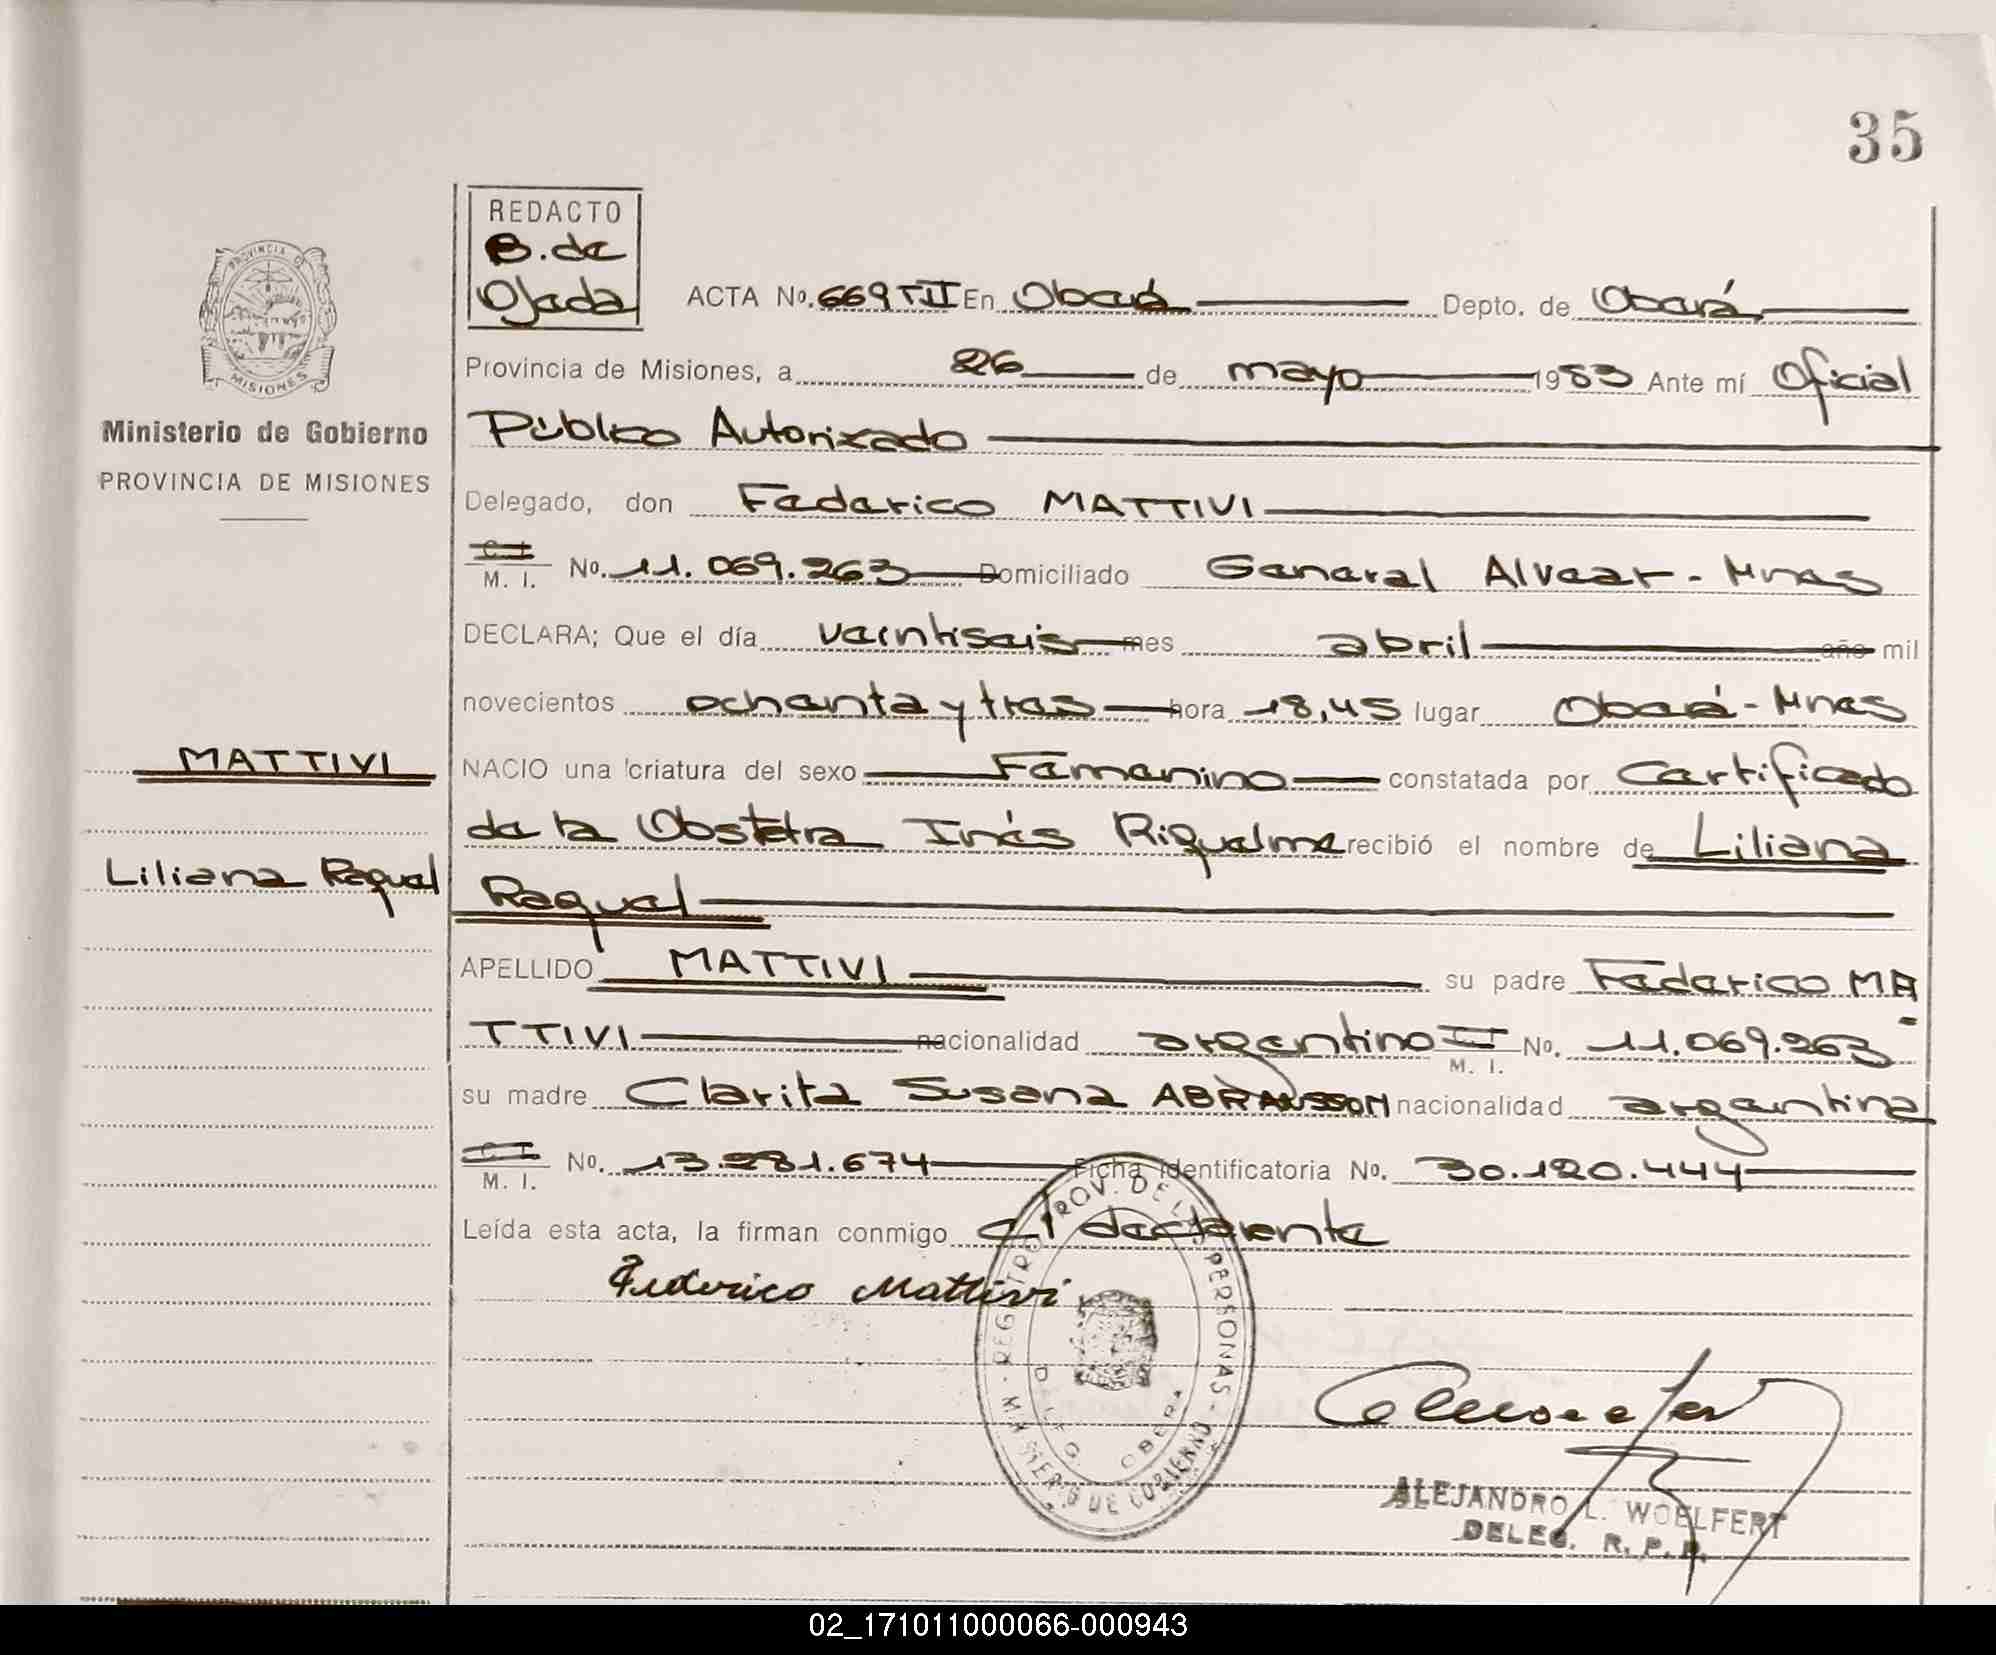 35
REDACTO
B. de
Ojeda
ACTA No. 669 TII En Oberá Depto. de Oberá
Provincia de Misiones, a 26 de mayo 1983 Ante mí Oficial
Público Autorizado
Ministerio de Gobierno
PROVINCIA DE MISIONES
Delegado, don Federico MATTIVI
C. I.
M. I. No. 11.069.263 Domiciliado General Alvear - Mnes
DECLARA; Que el día veintiseis mes abril año mil
novecientos ochenta y tres hora 18,45 lugar Oberá - Mnes
MATTIVI
NACIO una criatura del sexo Femenino constatada por Certificado
de la Obstetra Inés Riquelme recibió el nombre de Liliana
Liliana Raquel
Raquel
APELLIDO MATTIVI su padre Federico MA
TTIVI nacionalidad argentino M. I. No. 11.069.263
su madre Clarita Susana ABRAMSSON nacionalidad argentina
C. I.
M. I. No. 13.281.674 Ficha identificatoria No. 30.120.444
Leída esta acta, la firman conmigo el declarante
Federico Mattivi
REGISTRO PROV. DE LAS PERSONAS - MINISTERIO DE GOBIERNO
DELEG. OBERA
ALEJANDRO L. WOELFERT
DELEG. R. P. P.
PROVINCIA DE
MISIONES
02_171011000066-000943